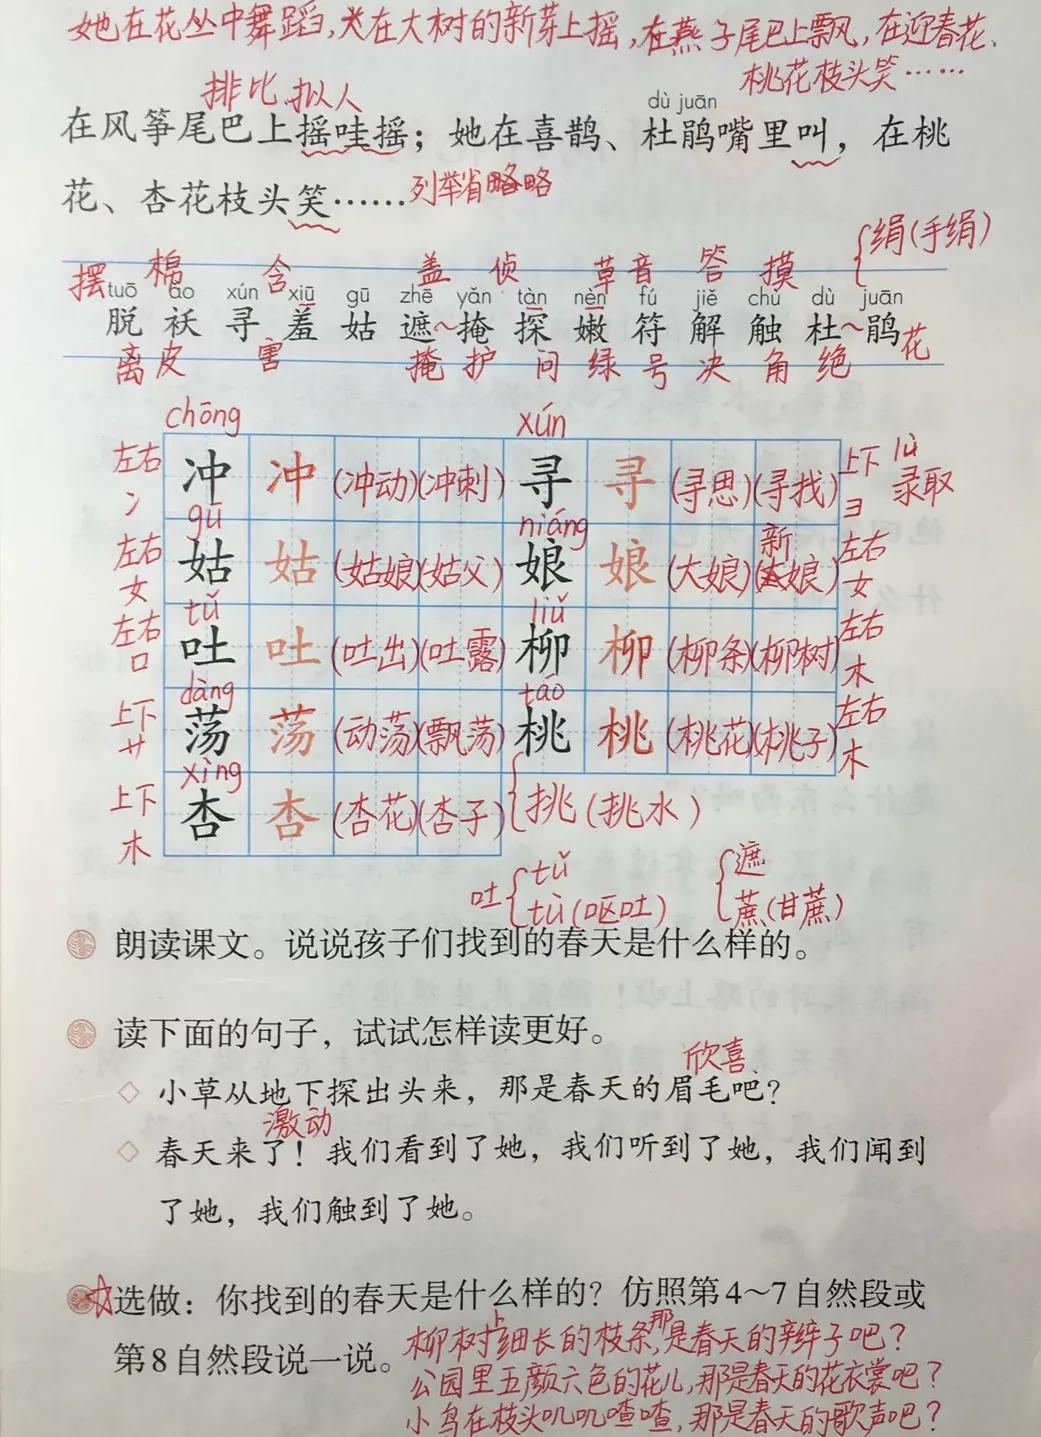 她在花丛中舞蹈,在大树的新芽上摇,在燕子尾巴上飘,在迎春花、
桃花枝头笑……
排比、拟人
dù juān
在风筝尾巴上摇哇摇；她在喜鹊、杜鹃嘴里叫，在桃
花、杏花枝头笑……列举省略
绢(手绢)
摆 棉 含 盖 侦 草 音 答 摸
tuō ǎo xún xiū gū zhē yǎn tàn nèn fú jiě chù dù juān
脱 袄 寻 羞 姑 遮~掩 探 嫩 符 解 触 杜~鹃
离 皮 害 掩 护 问 绿 号 决 角 绝 花
chōng xún
左右 冲 冲 (冲动)(冲刺) 寻 寻 (寻思)(寻找) 上下 lù
冫 彐 录取
gū niáng 新
左右 姑 姑 (姑娘)(姑父) 娘 娘 (大娘)(娘) 左右
女 女
tǔ liǔ
左右 吐 吐 (吐出)(吐露) 柳 柳 (柳条)(柳树) 左右
口 木
dàng táo
上下 荡 荡 (动荡)(飘荡) 桃 桃 (桃花)(桃子) 左右
艹 木
xìng
上下 杏 杏 (杏花)(杏子) 挑(挑水)
木
吐 tǔ 遮
tù(呕吐) 蔗(甘蔗)
朗读课文。说说孩子们找到的春天是什么样的。
读下面的句子，试试怎样读更好。
欣喜、
◇ 小草从地下探出头来，那是春天的眉毛吧？
激动
◇ 春天来了！我们看到了她，我们听到了她，我们闻到
了她，我们触到了她。
☆选做：你找到的春天是什么样的？仿照第4～7自然段或
第8自然段说一说。
柳树上细长的枝条,那是春天的辫子吧?
公园里五颜六色的花儿,那是春天的花衣裳吧?
小鸟在枝头叽叽喳喳,那是春天的歌声吧?